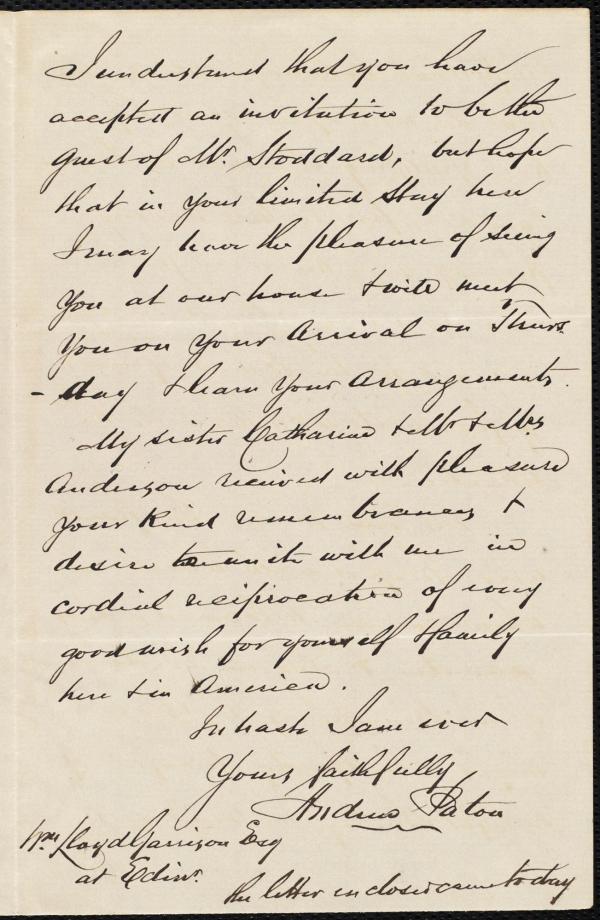 I understand that you have
accepted an invitation to be the
guest of Mr. Stoddard, but hope
that in your limited stay here
I may have the pleasure of seeing
you at our house & will meet
you on your arrival on Thurs
-day & learn your arrangements.
My sister Catharine & Mr & Mrs
Anderson received with pleasure
your kind remembrances &
desire to unite with me in
cordial reciprocation of every
good wish for yourself & family
here & in America.
In haste I am ever
Yours faithfully
Andrew Paton
Wm Lloyd Garrison Esq
at Edinr.
the letter enclosed came to day